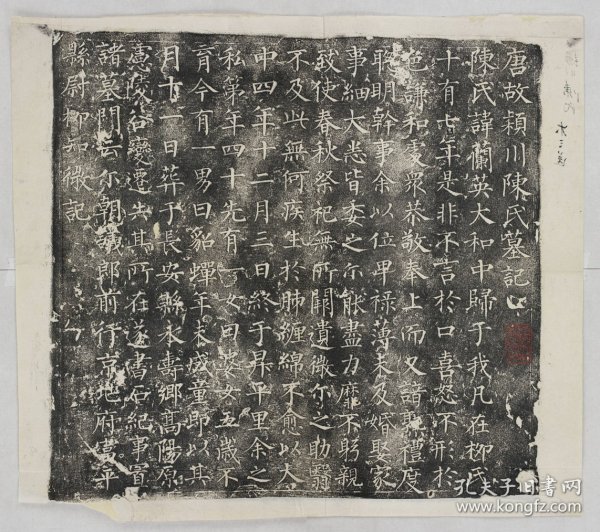 唐故潁川陳氏墓記
陳氏諱蘭英大和中歸于我凡在柳氏
十有七年是非不言於口喜怒不形於
色謙和處眾恭敬奉上而又諳熟禮度
聰明幹事余以位卑祿薄未及婚娶家
事細大悉皆委之尔能盡力靡不躬親
致使春秋祭祀無所闕遺微尔之助翳
不及此無何疾生於肺纏綿不愈以大
中四年十二月三日終于昇平里余之
私第年四十先有一女曰婆女五歲不
育今有一男曰貂蟬年未成童即以其
月十一日葬于長安縣永壽鄉高陽原
慮陵谷變遷失其所在遂書石紀事置
諸墓門云尔朝議郎前行京兆府富平
縣尉柳知微記
孔夫子旧書网
www.kongfz.com